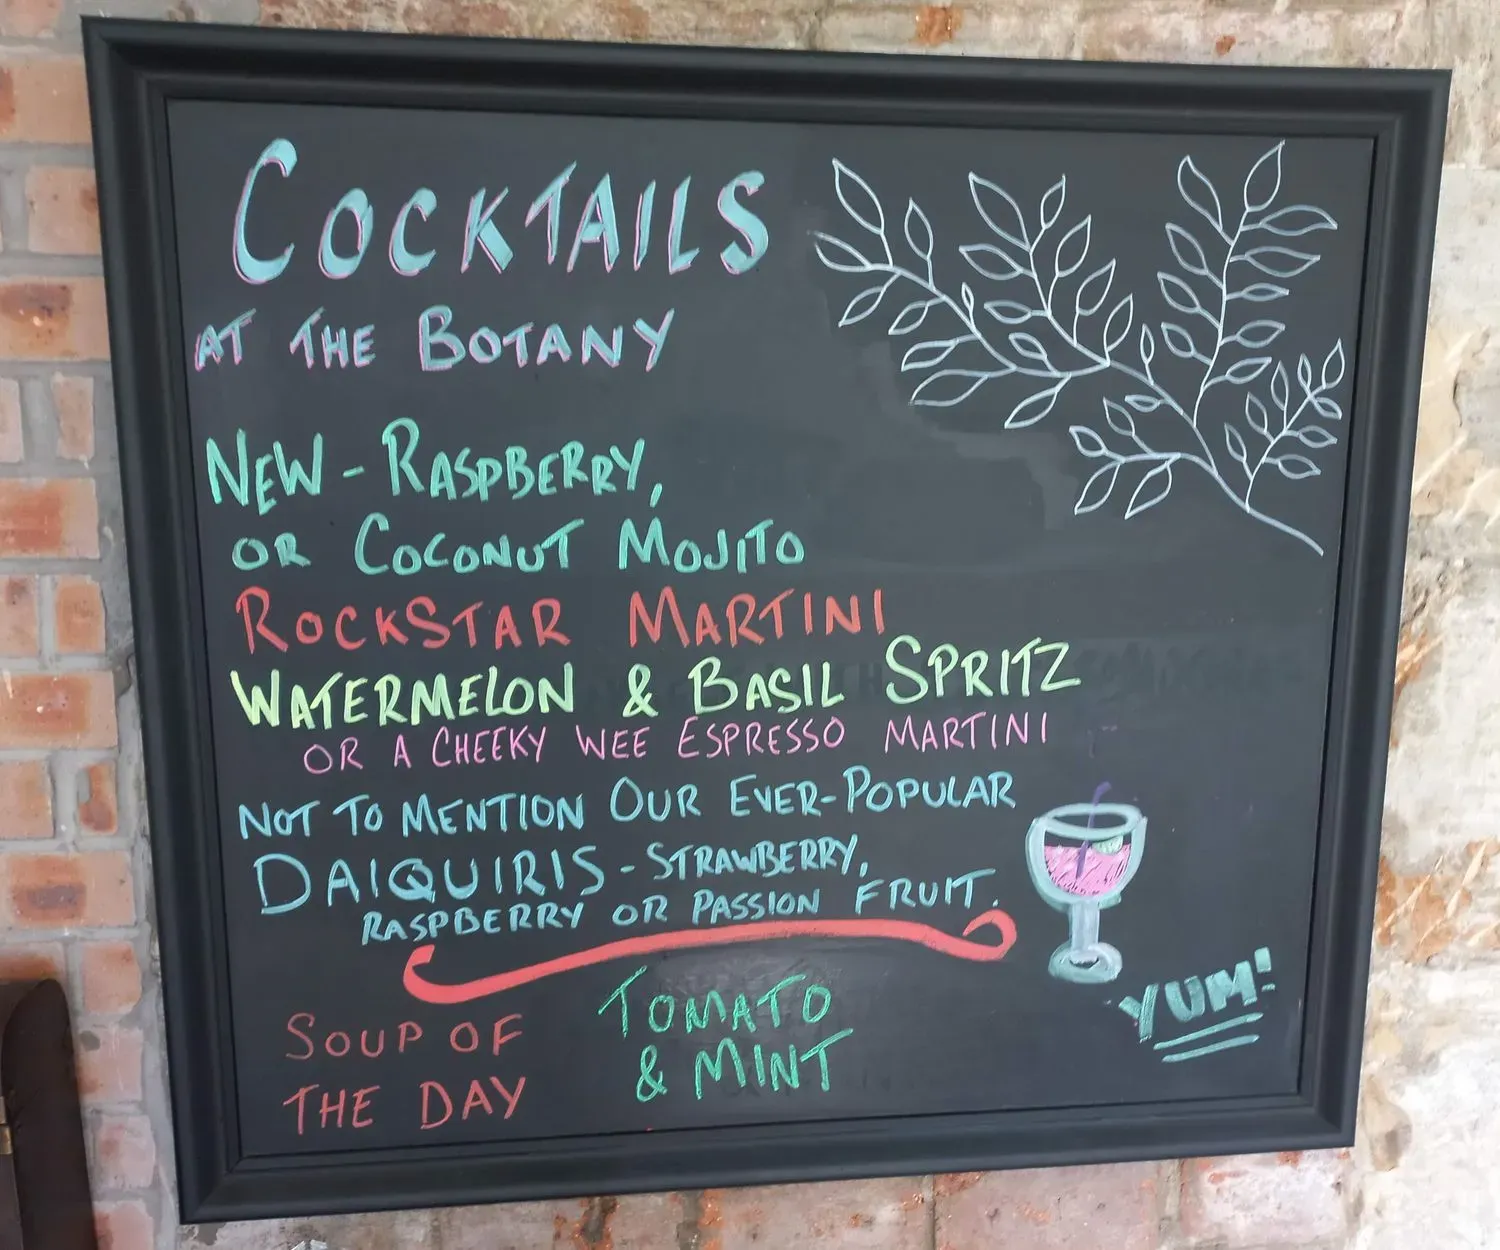 COCKTAILS
AT THE BOTANY
NEW - RASPBERRY,
OR COCONUT MOJITO
ROCKSTAR MARTINI
WATERMELON & BASIL SPRITZ
OR A CHEEKY WEE ESPRESSO MARTINI
NOT TO MENTION OUR EVER-POPULAR
DAIQUIRIS - STRAWBERRY,
RASPBERRY OR PASSION FRUIT.
YUM!
SOUP OF
THE DAY
TOMATO
& MINT